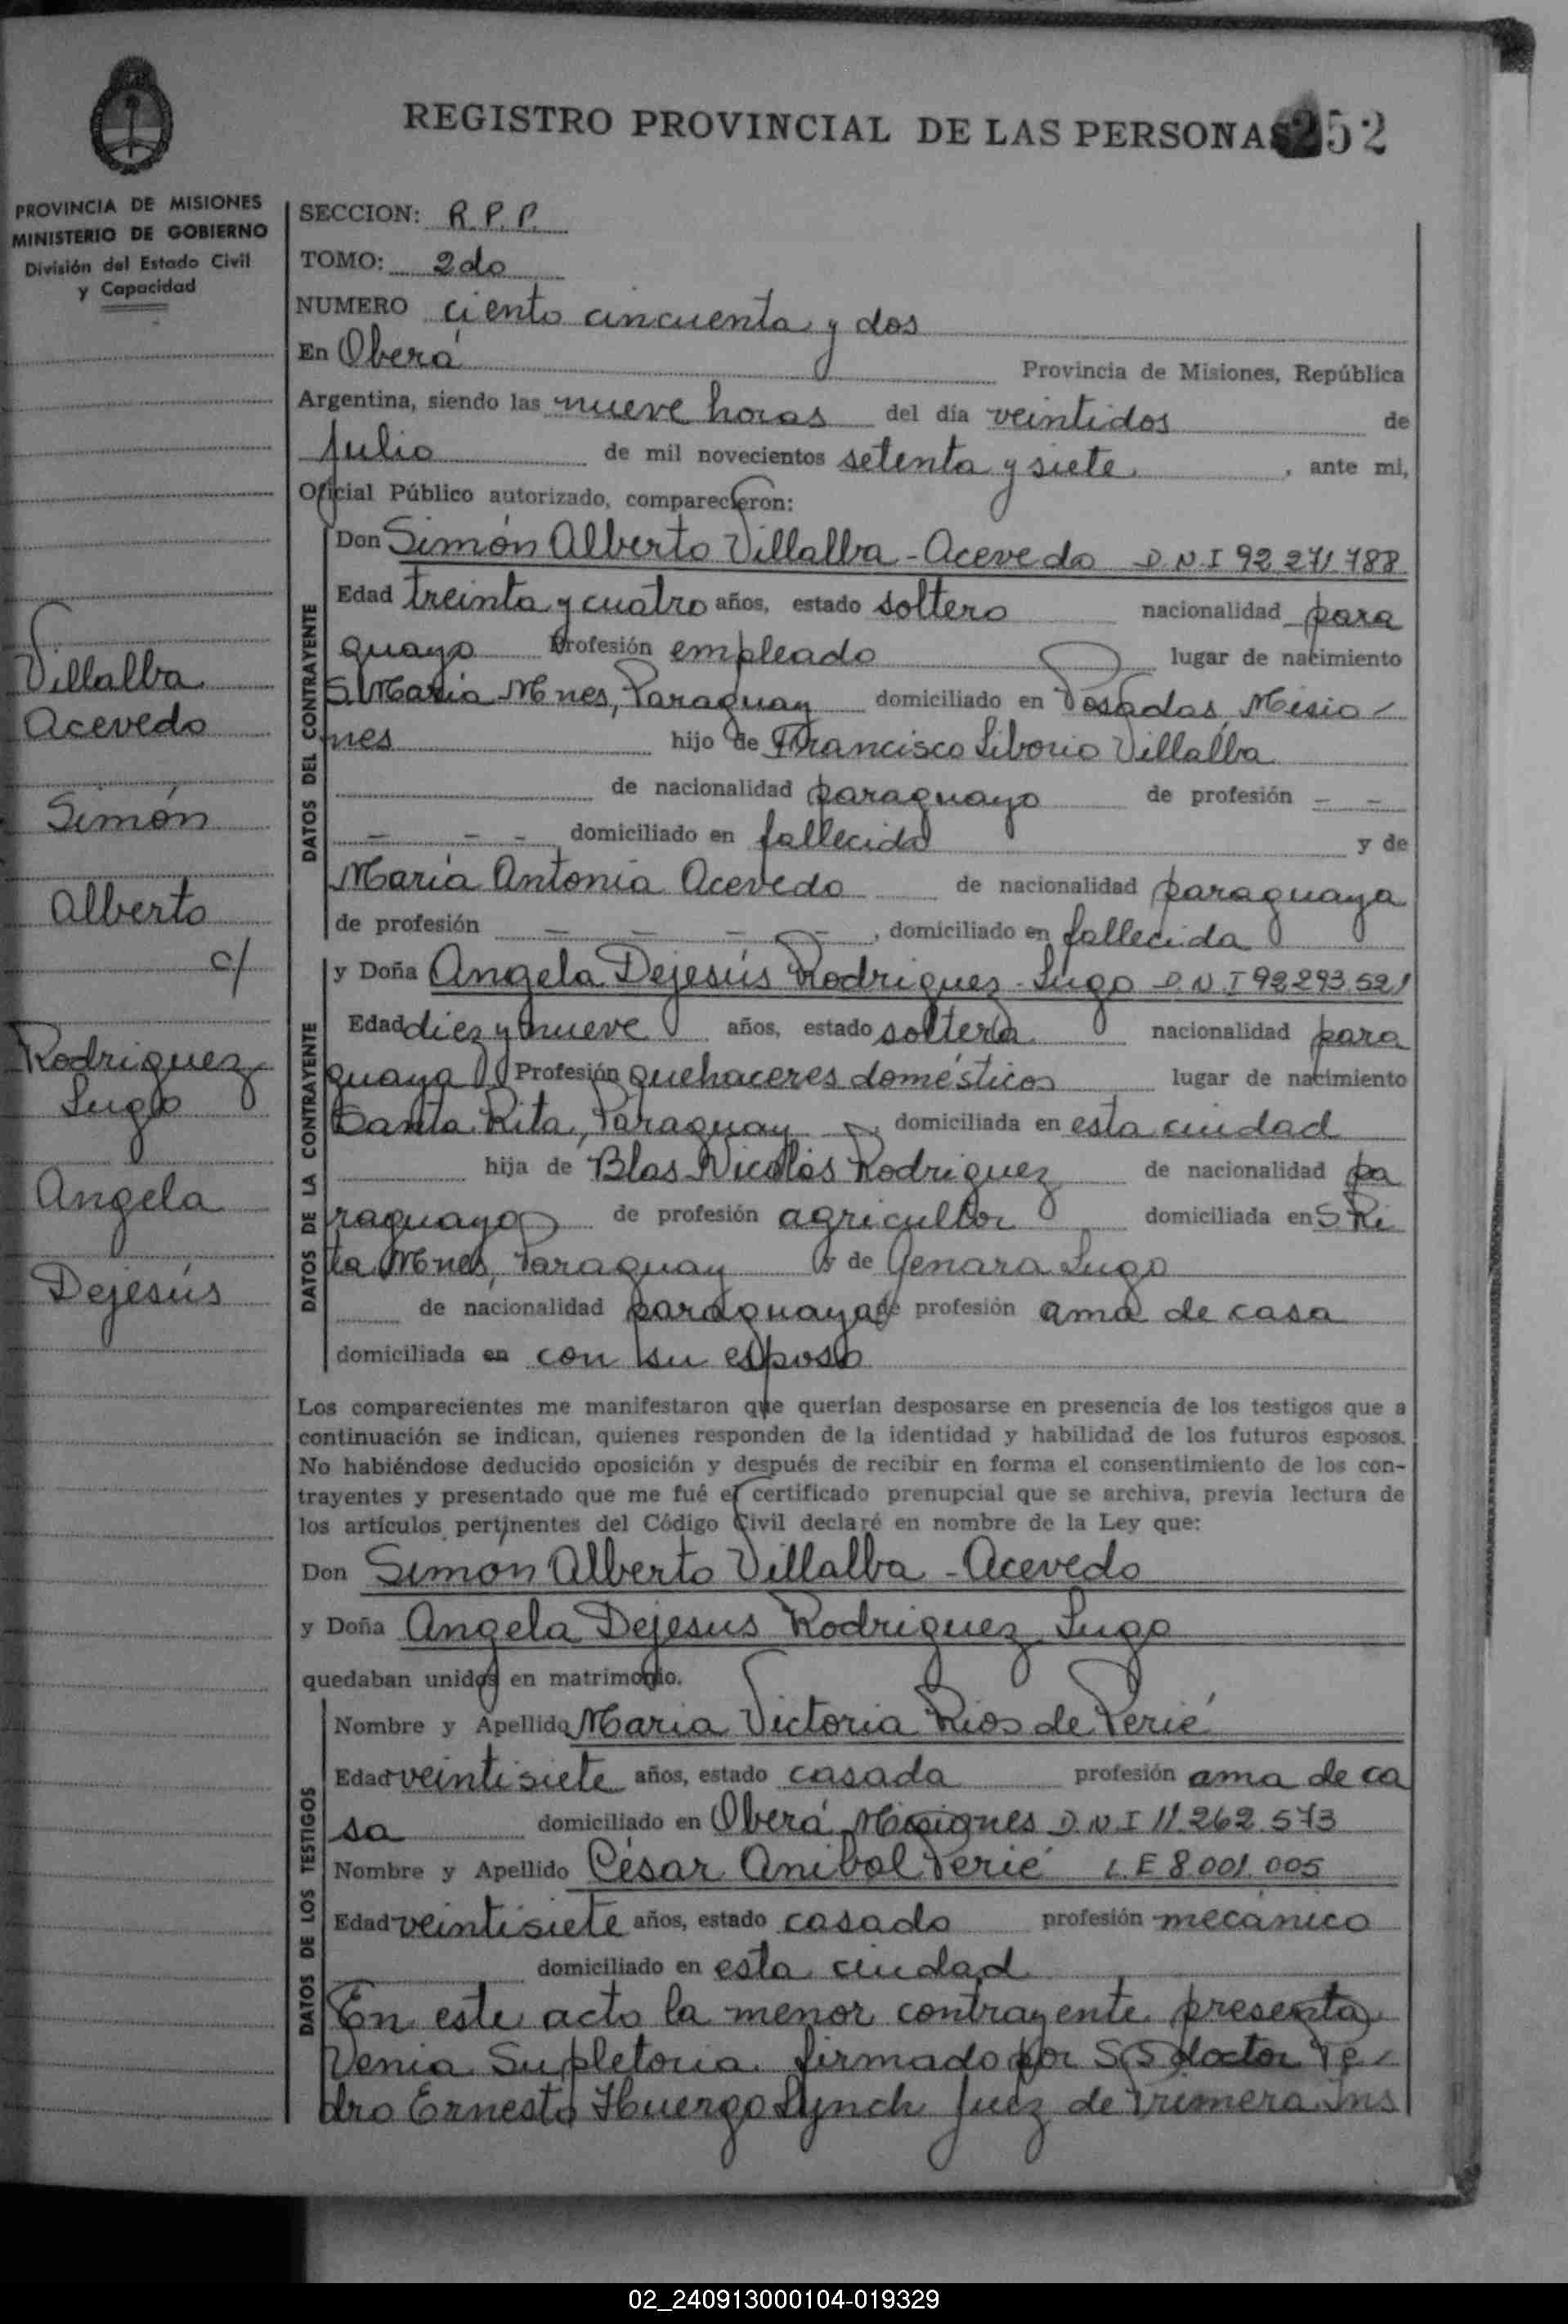 REGISTRO PROVINCIAL DE LAS PERSONAS 252
PROVINCIA DE MISIONES
MINISTERIO DE GOBIERNO
División del Estado Civil
y Capacidad
Villalba
Acevedo
Simón
Alberto
c/
Rodriguez
Lugo
Angela
Dejesús
SECCION: R.P.P.
TOMO: 2do
NUMERO ciento cincuenta y dos
En Oberá Provincia de Misiones, República
Argentina, siendo las nueve horas del día veintidos de
julio de mil novecientos setenta y siete, ante mi,
Oficial Público autorizado, comparecieron:
DATOS DEL CONTRAYENTE
Don Simón Alberto Villalba - Acevedo D.N.I 92.271.788
Edad treinta y cuatro años, estado soltero nacionalidad para
guayo Profesión empleado lugar de nacimiento
S. Maria Mnes, Paraguay domiciliado en Posadas, Misio-
nes hijo de Francisco Liborio Villalba
de nacionalidad paraguayo de profesión - -
- - - domiciliado en fallecido y de
María Antonia Acevedo de nacionalidad paraguaya
de profesión - - - -, domiciliado en fallecida
DATOS DE LA CONTRAYENTE
y Doña Angela Dejesús Rodriguez - Lugo D.N.I 92.293.521
Edad diez y nueve años, estado soltera nacionalidad para
guaya Profesión quehaceres domésticos lugar de nacimiento
Santa Rita, Paraguay domiciliada en esta ciudad
hija de Blas Nicolás Rodriguez de nacionalidad pa
raguayo de profesión agricultor domiciliada en S Ri
ta Mnes, Paraguay y de Genara Lugo
de nacionalidad paraguaya de profesión ama de casa
domiciliada en con su esposo
Los comparecientes me manifestaron que querían desposarse en presencia de los testigos que a
continuación se indican, quienes responden de la identidad y habilidad de los futuros esposos.
No habiéndose deducido oposición y después de recibir en forma el consentimiento de los con-
trayentes y presentado que me fué el certificado prenupcial que se archiva, previa lectura de
los artículos pertinentes del Código Civil declaré en nombre de la Ley que:
Don Simon Alberto Villalba - Acevedo
y Doña Angela Dejesus Rodriguez Lugo
quedaban unidos en matrimonio.
DATOS DE LOS TESTIGOS
Nombre y Apellido Maria Victoria Rios de Perié
Edad veintisiete años, estado casada profesión ama de ca
sa domiciliado en Oberá Misiones D.N.I 11.262.573
Nombre y Apellido César Anibal Perié L.E 8.001.005
Edad veintisiete años, estado casado profesión mecánico
domiciliado en esta ciudad
En este acto la menor contrayente presenta
Venia Supletoria firmado por S.S doctor Pe-
dro Ernesto Huergo Lynch Juez de Primera Ins
02_240913000104-019329